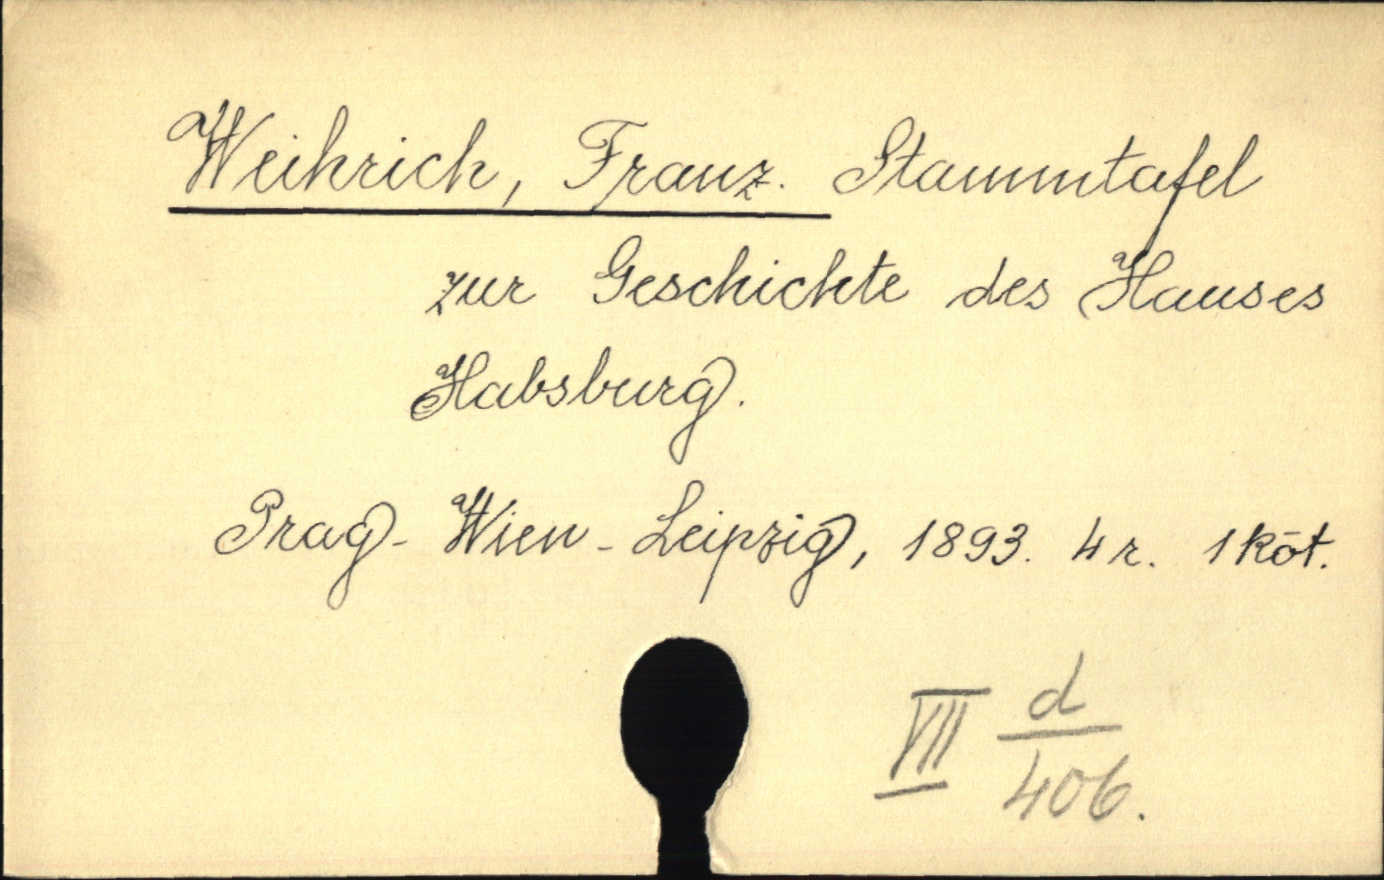 Weihrich, Franz. Stammtafel
zur Geschichte des Hauses
Habsburg.
Prag - Wien - Leipzig, 1893. 4 r. 1 köt.
VII d
406.